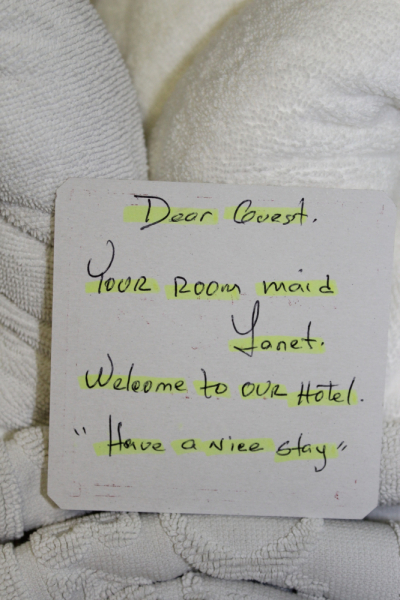 Dear Guest.
Your Room maid
Yanet.
Welcome to our Hotel.
"Have a Nice stay"